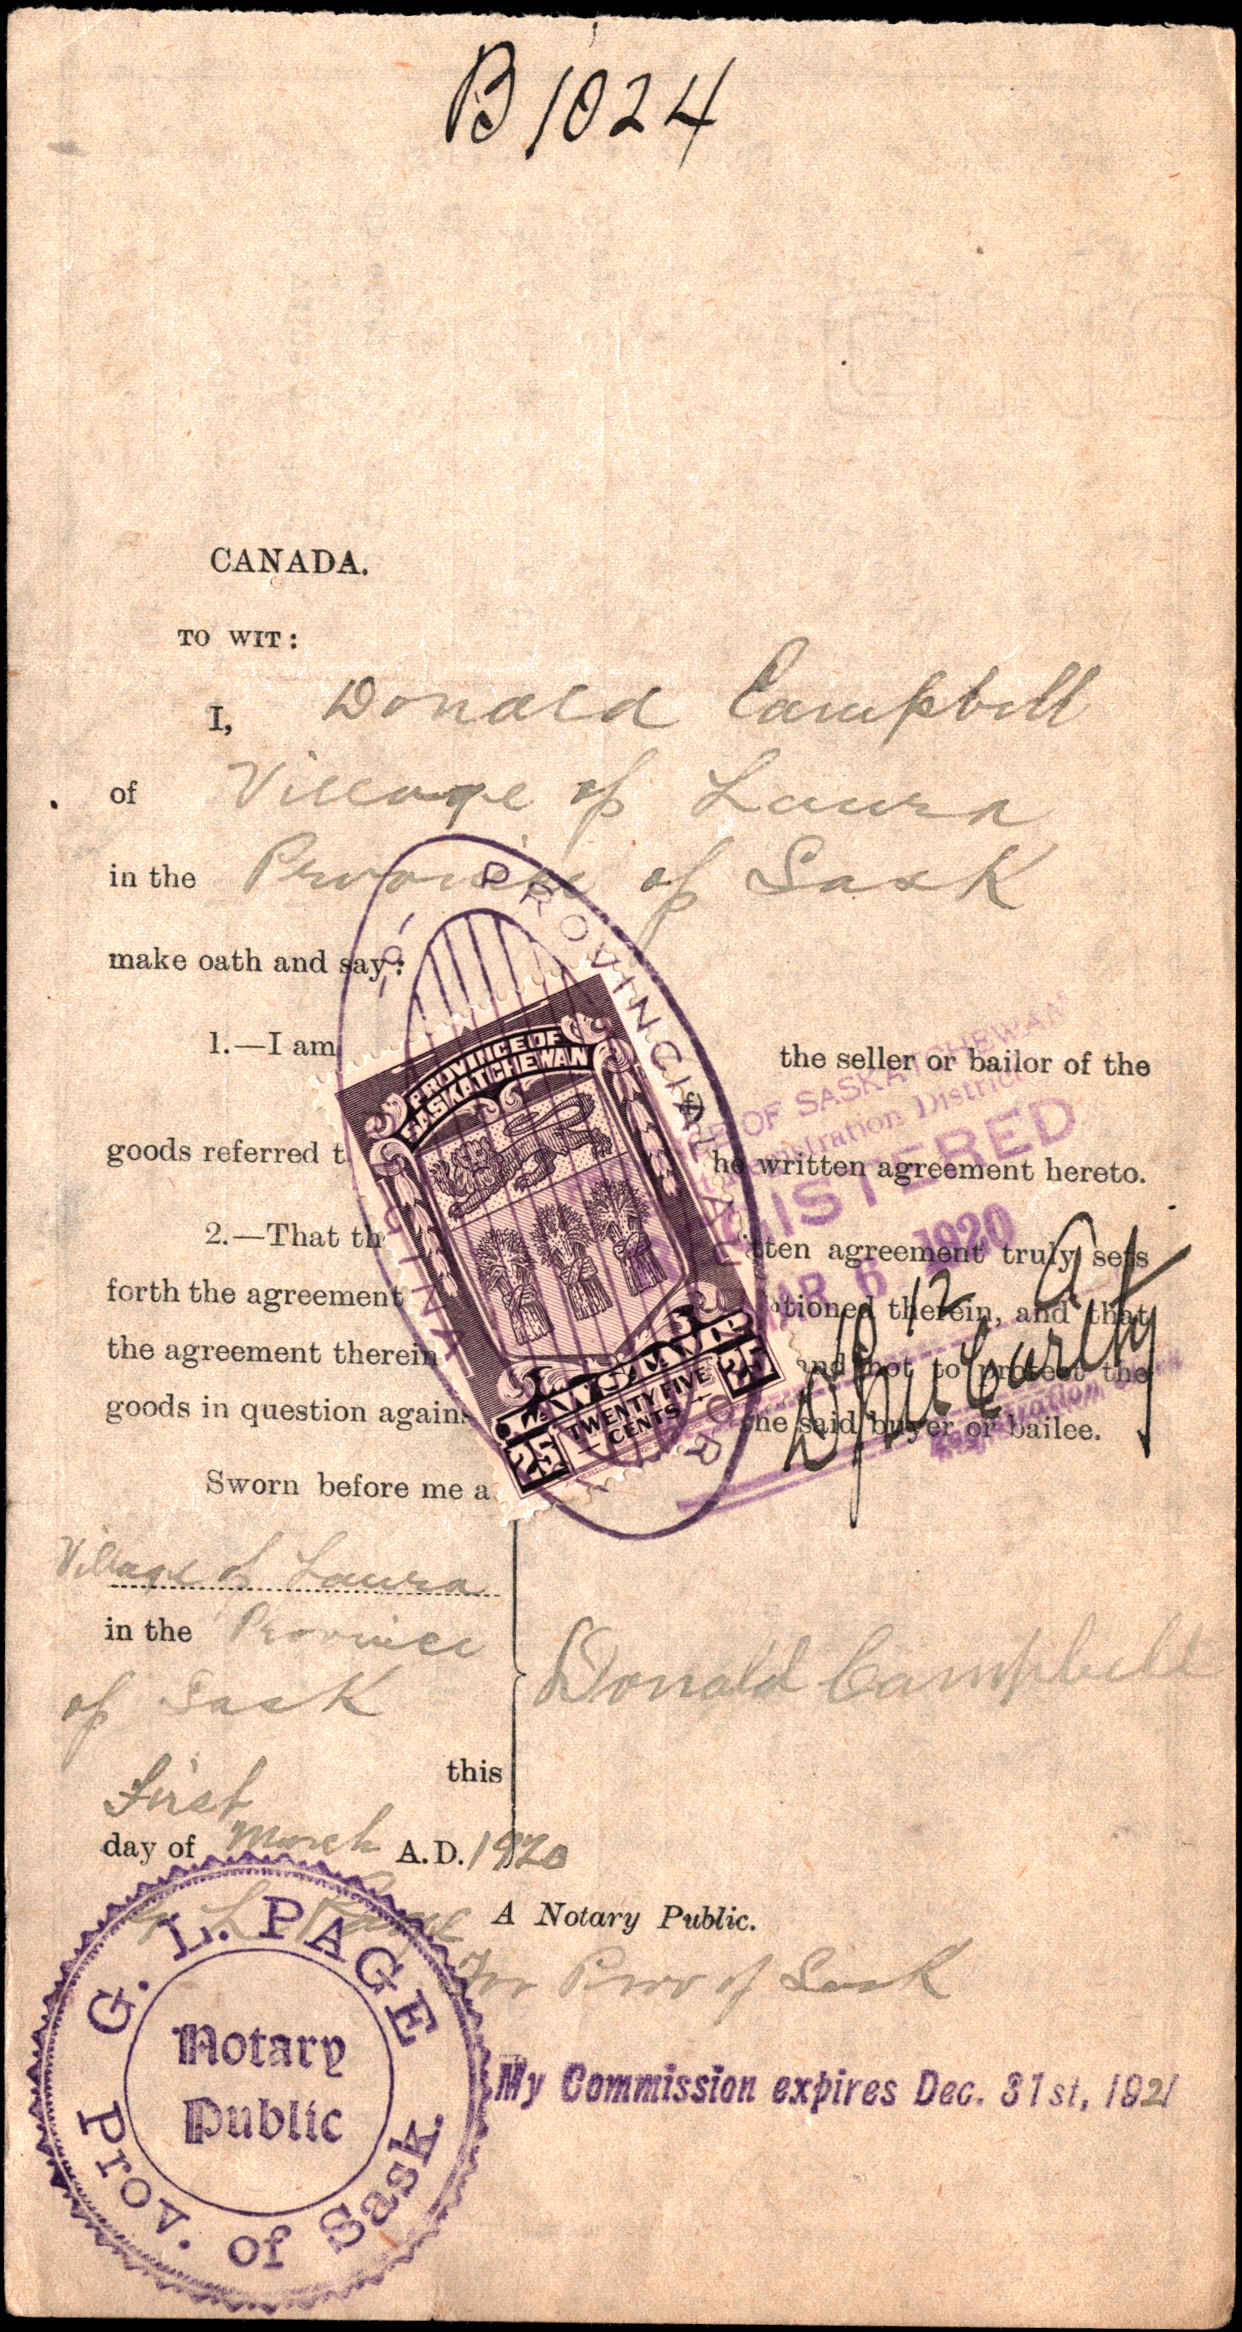 B1024
CANADA.
TO WIT:
I, Donald Campbell
of Village of Laura
in the Province of Sask
make oath and say:
1.—I am the seller or bailor of the
goods referred t he written agreement hereto.
2.—That th ten agreement truly sets
forth the agreement tioned therein, and that
the agreement therein and not to protect the
goods in question agains he said buyer or bailee.
PROVINCIAL
GINA
PROVINCE OF
SASKATCHEWAN
LAW STAMP
25 TWENTY FIVE 25
CENTS
OF SASKATCHEWAN
Registration District
GISTERED
MAR 6 1920
12
Registration
Sworn before me a
Village of Laura
in the Province
of Sask
Donald Campbell
this
First
day of March A.D. 1920
G L Page A Notary Public.
For Prov of Sask
G. L. PAGE
Notary
Public
Prov. of Sask.
My Commission expires Dec. 31st, 1921